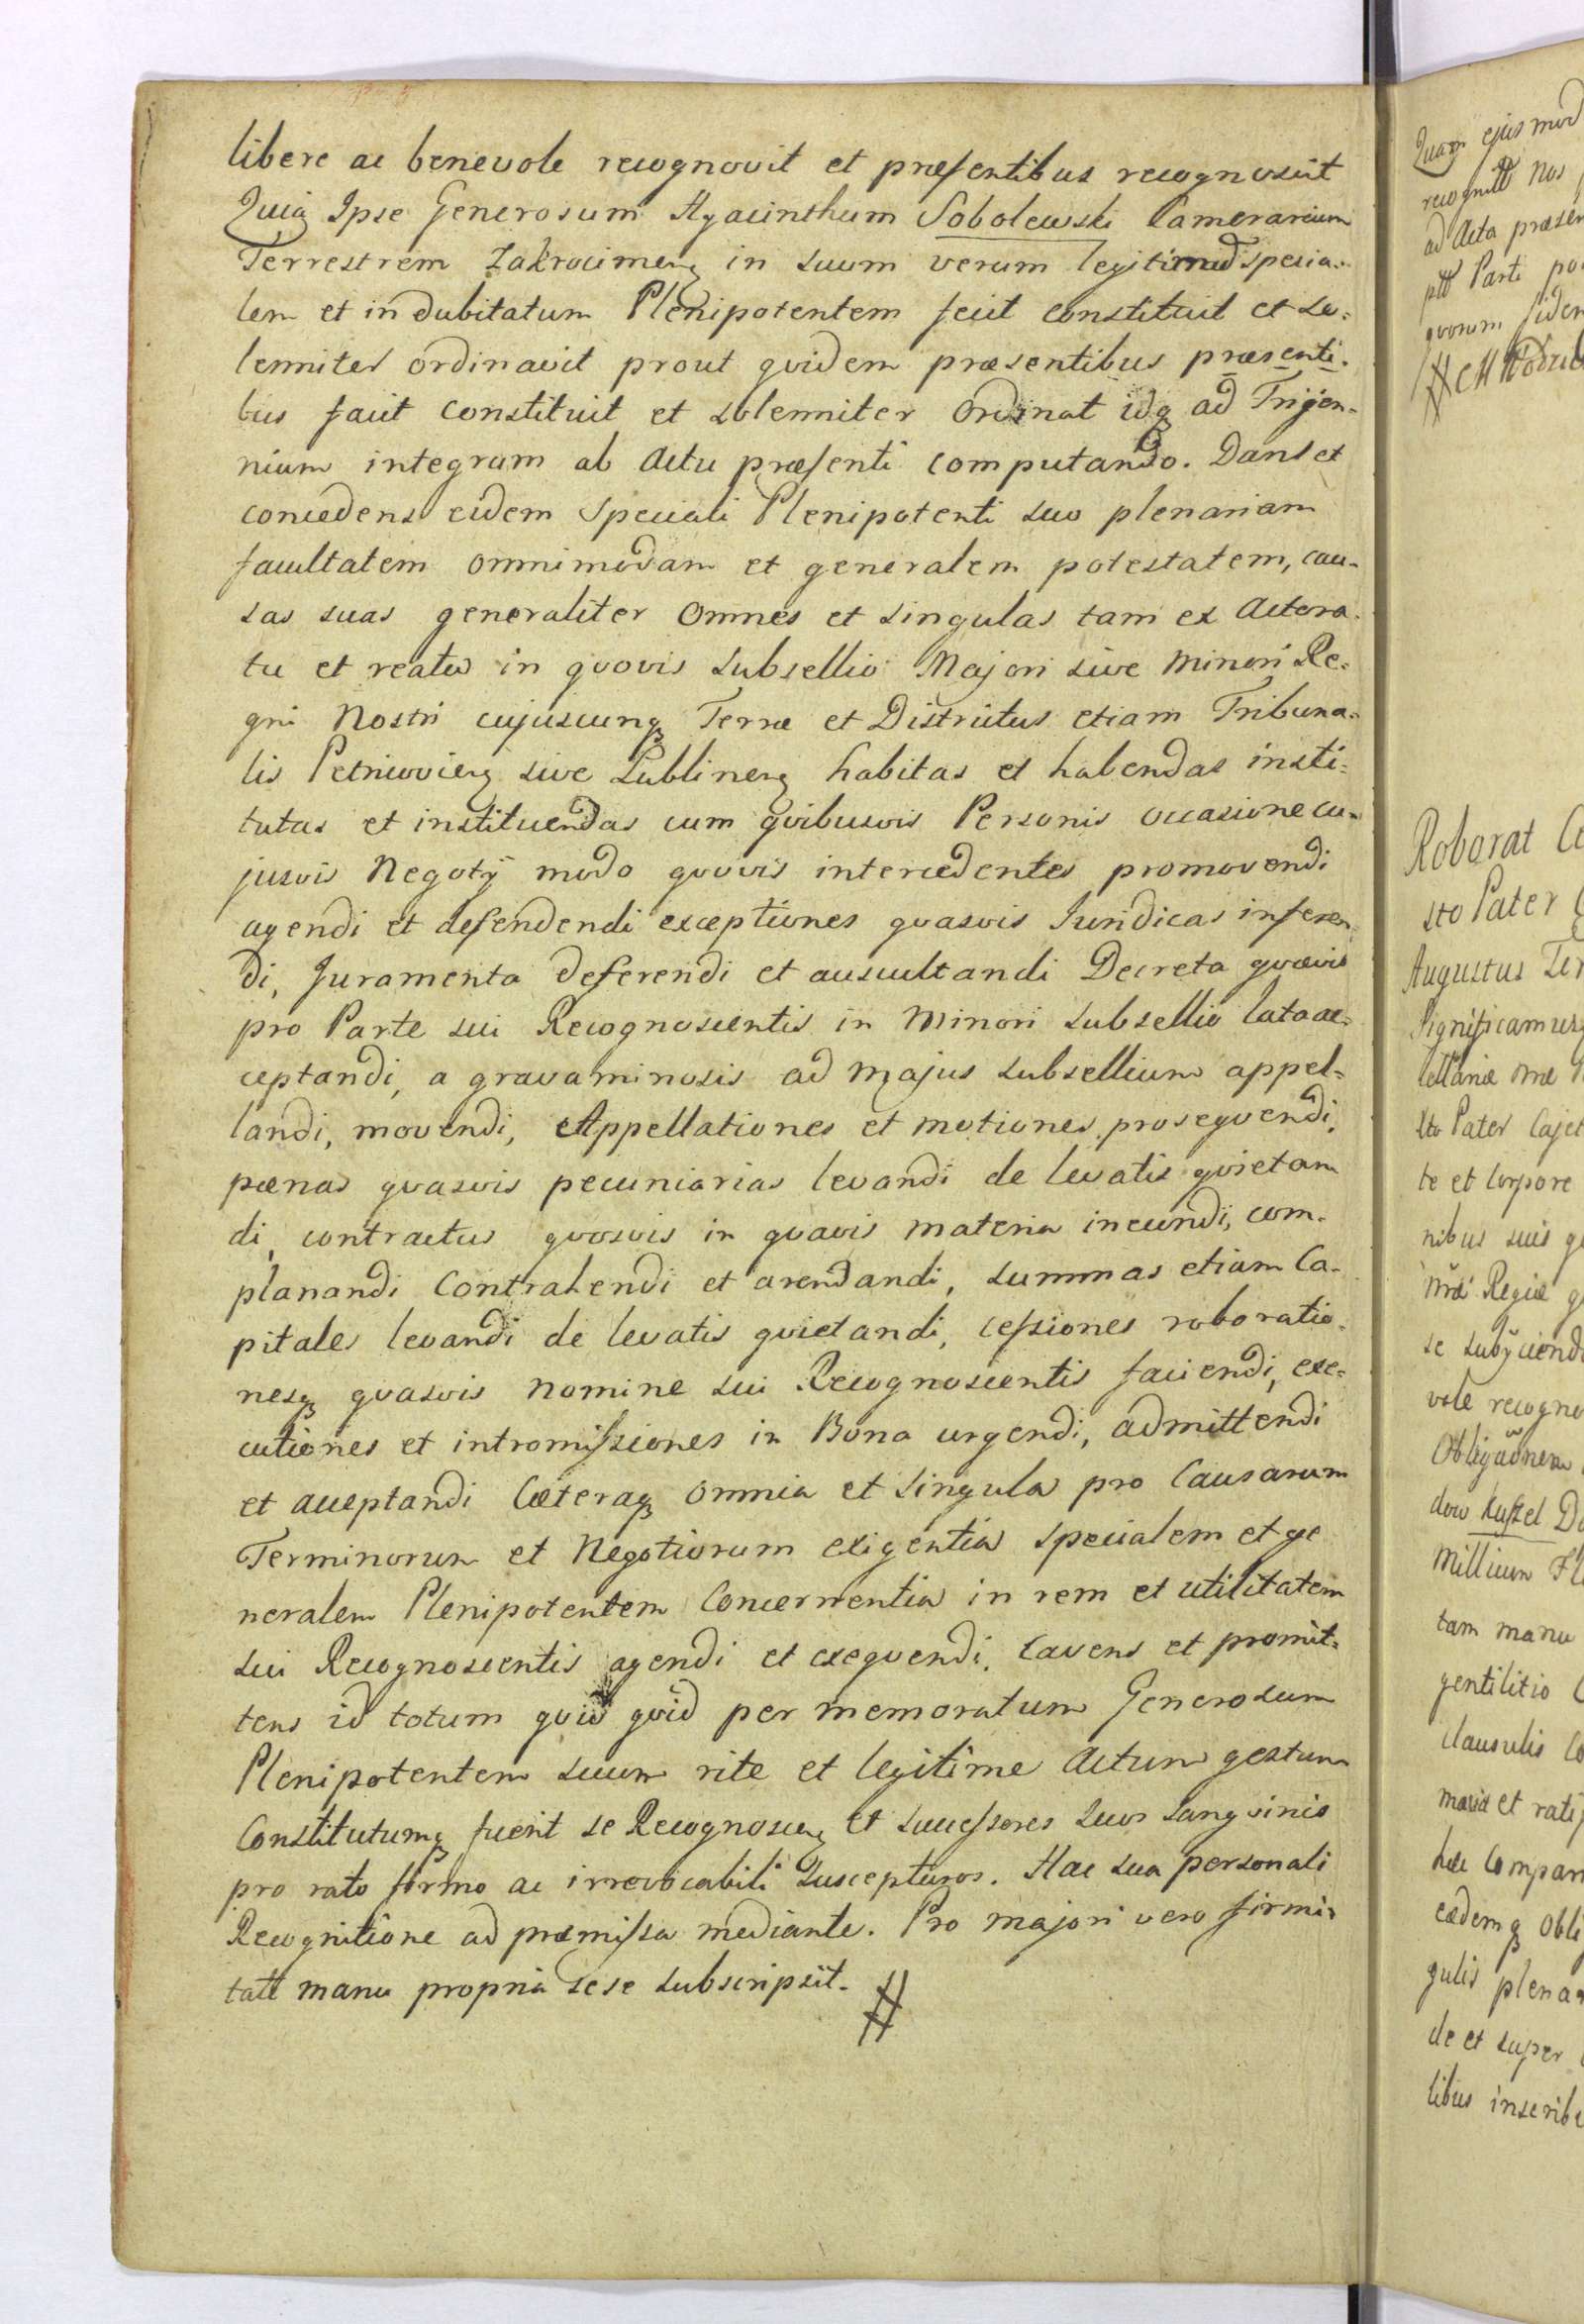 libere ac benevole recognovit et præsentibus recognoscit
Quia Ipse Generosum Hyacinthum Sobolewski Camerarium
Terrestrem Zakrocimenq in suum verum legitimũ specia-
lem et indubitatum Plenipotentem fecit constituit et so-
lenniter ordinavit prout qvidem præsentibus præsenti-
bus facit constituit et solenniter ordinat idq ad Trijen-
nium integrum ab Actu præsenti computando. Dans et
concedens eidem Speciali Plenipotenti suo plenariam
facultatem omnimodam et generalem potestatem, cau-
sas suas generaliter omnes et singulas tam ex Actora-
tu et reatu in qvovis subsellio Majori sive Minori Re-
gni Nostri cujuscunq Terræ et Districtus etiam Tribuna-
lis Petricovienq sive Lublinenq habitas et habendas insti-
tutas et instituendas cum qvibusvis Personis occasione cu-
jusvis Negotij modo qvovis intercedentes promovendi
agendi et defendendi exceptiones qvasvis Juridicas inferen
di, Juramenta deferendi et auscultandi Decreta qvævis
pro Parte sui Recognoscentis in Minori subsellio lata ac-
ceptandi, a gravaminosis ad Majus subsellium appel-
landi, movendi, Appellationes et motiones proseqvendi,
pænas qvasvis pecuniarias levandi de levatis qvietan
di, contractus qvosvis in qvavis materia ineundi, com-
planandi Contrahendi et arendandi, summas etiam Ca-
pitales levandi de levatis qvietandi, cessiones roboratio-
nesq qvasvis nomine sui Recognoscentis faciendi, exe-
cutiones et intromissiones in Bona urgendi, admittendi
et acceptandi Cæteraq omnia et singula pro Causarum
Terminorum et Negotiorum exigentia specialem et ge
neralem Plenipotentem Concernentia in rem et utilitatem
sui Recognoscentis agendi et exeqvendi. Cavens et promit-
tens id totum qvid qvid per memoratum Generosum
Plenipotentem suum rite et legitime Actum gestum
Constitutumq fuerit se Recognoscenq et successores suos sangvinis
pro rato firmo ac irrevocabili suscepturos. Hac sua personali
Recognitione ad præmissa mediante. Pro majori vero firmi-
tate manu propria sese subscripsit. #
Qvam ejusmod
recognitt nos
ad Acta præsen
ptt Parti por
qvorum fiden
Roborat
sto Pater
Augustus Ter
Significamusq
sto Pater Cajet
te et Corpore
nibus suis
Regiæ
se subijciend
vole recogno
Millium
tam manu
gentilitio
clausulis
gulis plena
de et super
libus inscribe